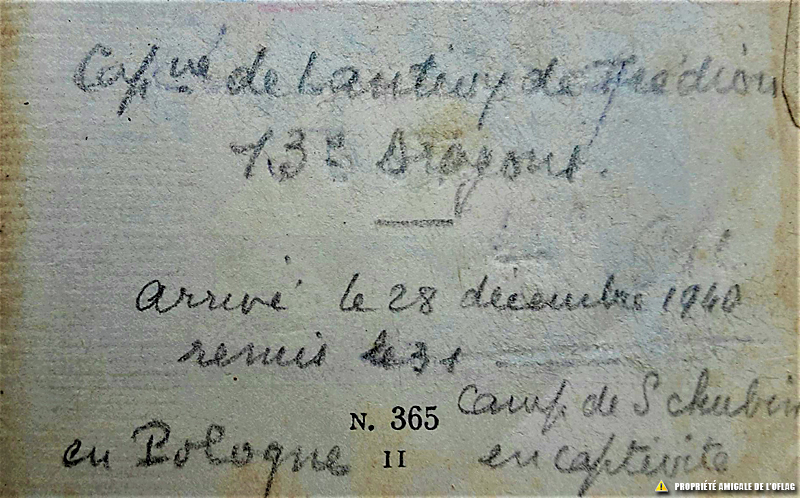 Cap.ne de Lantivy de Trédion
13e Dragons.
arrivé le 28 décembre 1940
remis le 31
Camp. de Schubin
N. 365
en Pologne
II
en captivité
PROPRIÉTÉ AMICALE DE L'OFLAG